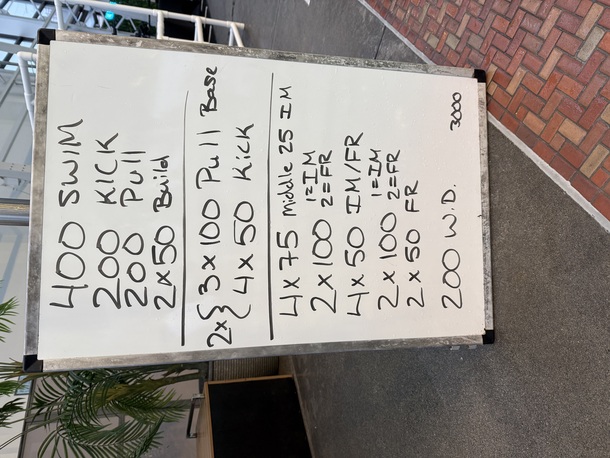 400 SWIM
200 KICK
200 Pull
2x50 Build
2x{ 3x100 Pull Base
4x50 Kick
4x75 Middle 25 IM
2x100 1=IM
2=FR
4x50 IM/FR
2x100 1=IM
2=FR
2x50 FR
200 W.D.
3000